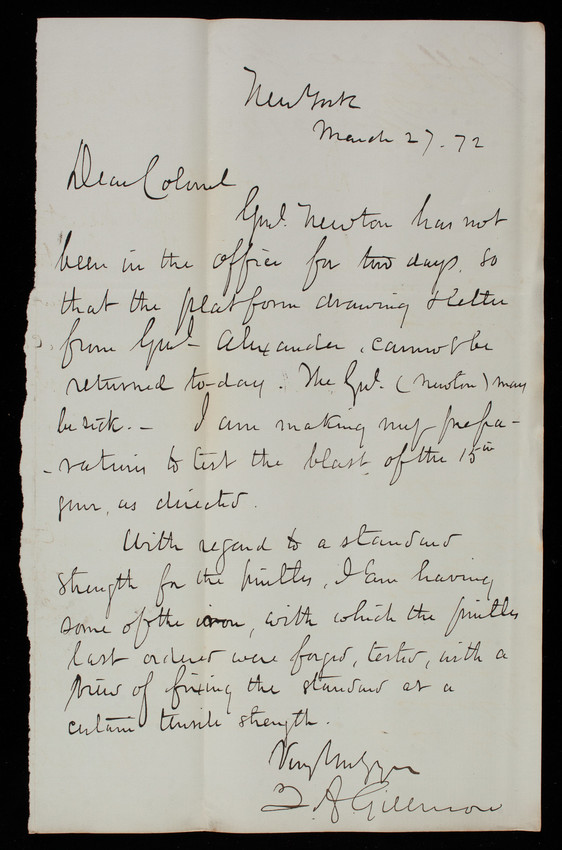 New York
March 27. 72
Dear Colonel
Genl. Newton has not
been in the office for two days, so
that the platform drawing & letter
from Genl. Alexander, cannot be
returned to-day. The Genl. (Newton) may
be sick. — I am making my prepa-
-rations to test the blast of the 15 in
gun, as directed.
With regard to a standard
strength for the pintles, I am having
some of the iron, with which the pintles
last ordered were forged, tested, with a
view of fixing the standard at a
certain tensile strength.
Very truly yrs
Q. A. Gillmore